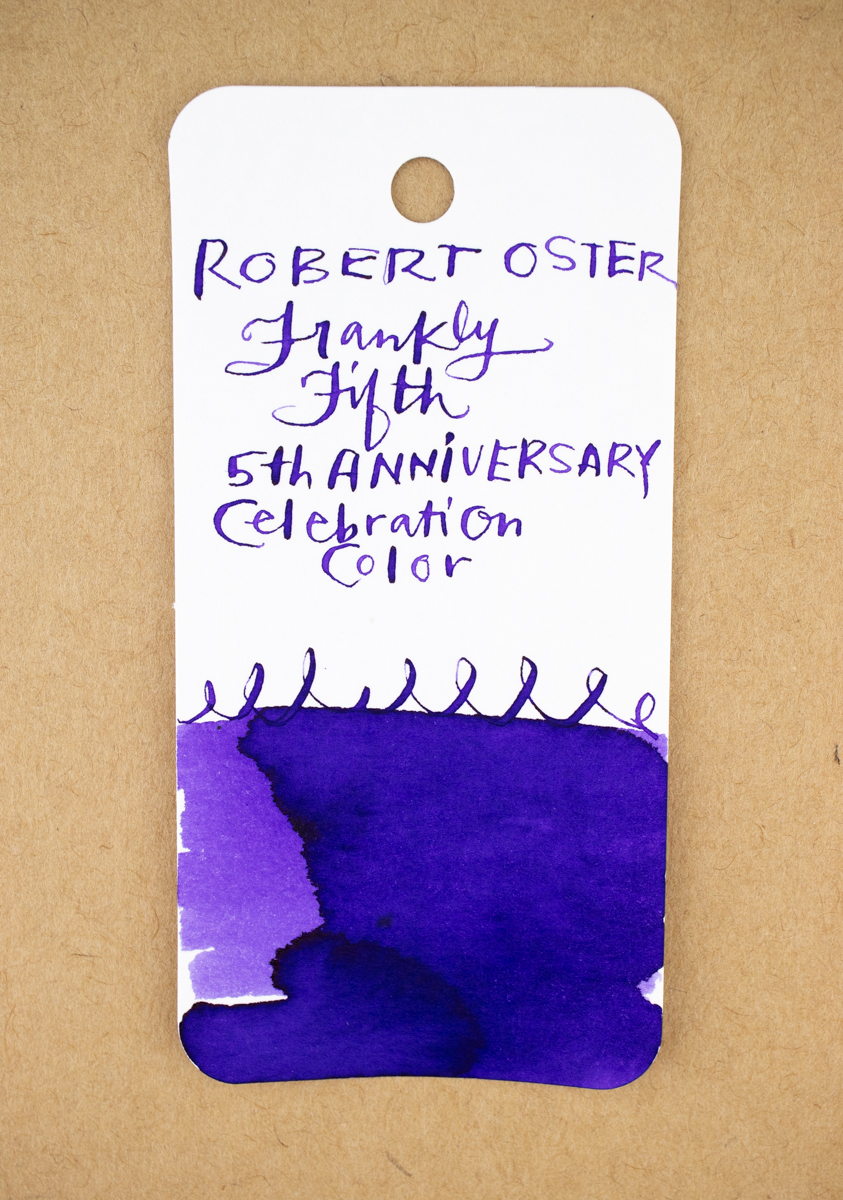 ROBERT OSTER
Frankly
Fifth
5th ANNiVERSARY
Celebration
Color